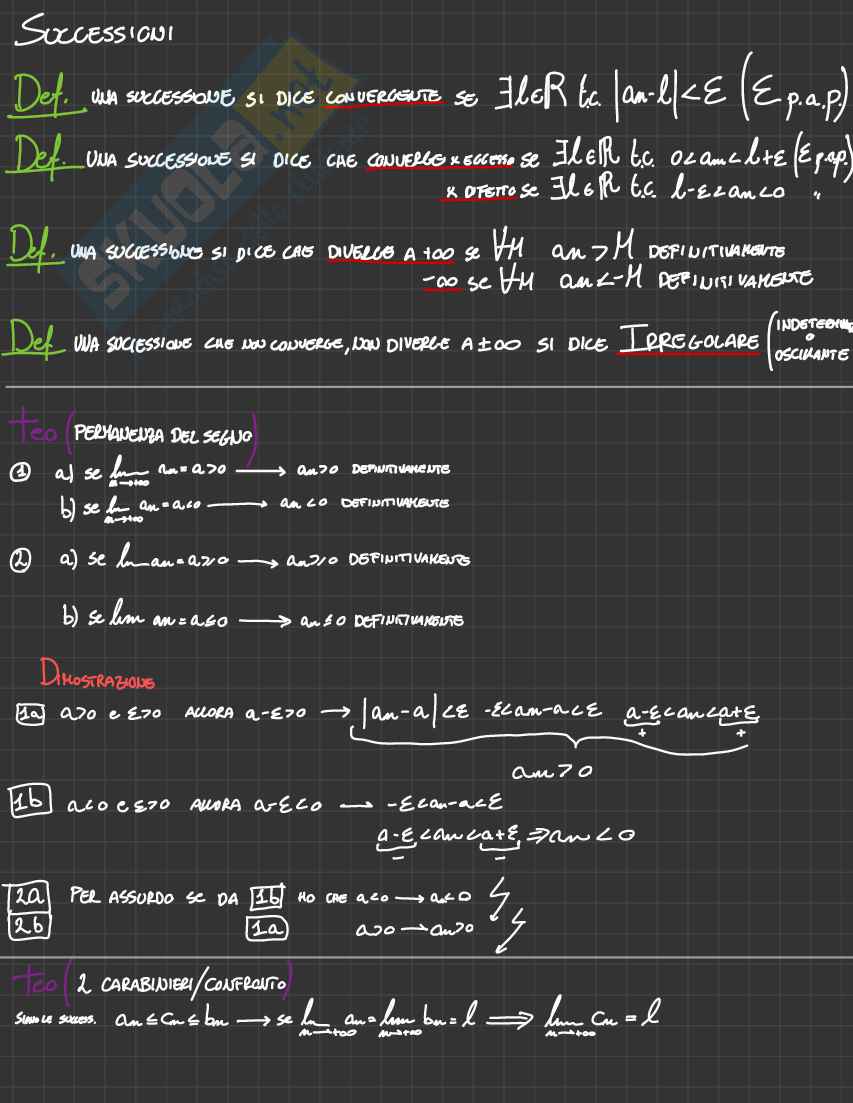 SUCCESSIONI
Def. UNA SUCCESSIONE SI DICE CONVERGENTE SE ∃l∈ℝ t.c. |an-l|<ε (ε p.a.p.)
Def. UNA SUCCESSIONE SI DICE CHE CONVERGE x ECCESSO se ∃l∈ℝ t.c. 0<an<l+ε (ε p.a.p.)
x DIFETTO se ∃l∈ℝ t.c. l-ε<an<0 "
Def. UNA SUCCESSIONE SI DICE CHE DIVERGE A +∞ se ∀M an>M DEFINITIVAMENTE
-∞ se ∀M an<-M DEFINITIVAMENTE
Def. UNA SUCCESSIONE CHE NON CONVERGE, NON DIVERGE A ±∞ SI DICE IRREGOLARE (INDETERMIN
O
OSCILLANTE
teo (PERMANENZA DEL SEGNO)
① a) se lim n→+∞ an=a>0 → an>0 DEFINITIVAMENTE
b) se lim n→+∞ an=a<0 → an<0 DEFINITIVAMENTE
② a) se lim an=a≥0 → an≥0 DEFINITIVAMENTE
b) se lim an=a≤0 → an≤0 DEFINITIVAMENTE
DIMOSTRAZIONE
1a a>0 e ε>0 ALLORA a-ε>0 → |an-a|<ε -ε<an-a<ε a-ε<an<a+ε
+ +
an>0
1b a<0 e ε>0 ALLORA a-ε<0 → -ε<an-a<ε
a-ε<an<a+ε ⇒ an<0
- -
2a PER ASSURDO SE DA 1b HO CHE a<0 → an<0
2b 1a a>0 → an>0
teo (2 CARABINIERI/CONFRONTO)
SUCCESS. an≤cn≤bn → se lim n→+∞ an=lim n→+∞ bn=l ⇒ lim n→+∞ cn=l
SKUOLA.net